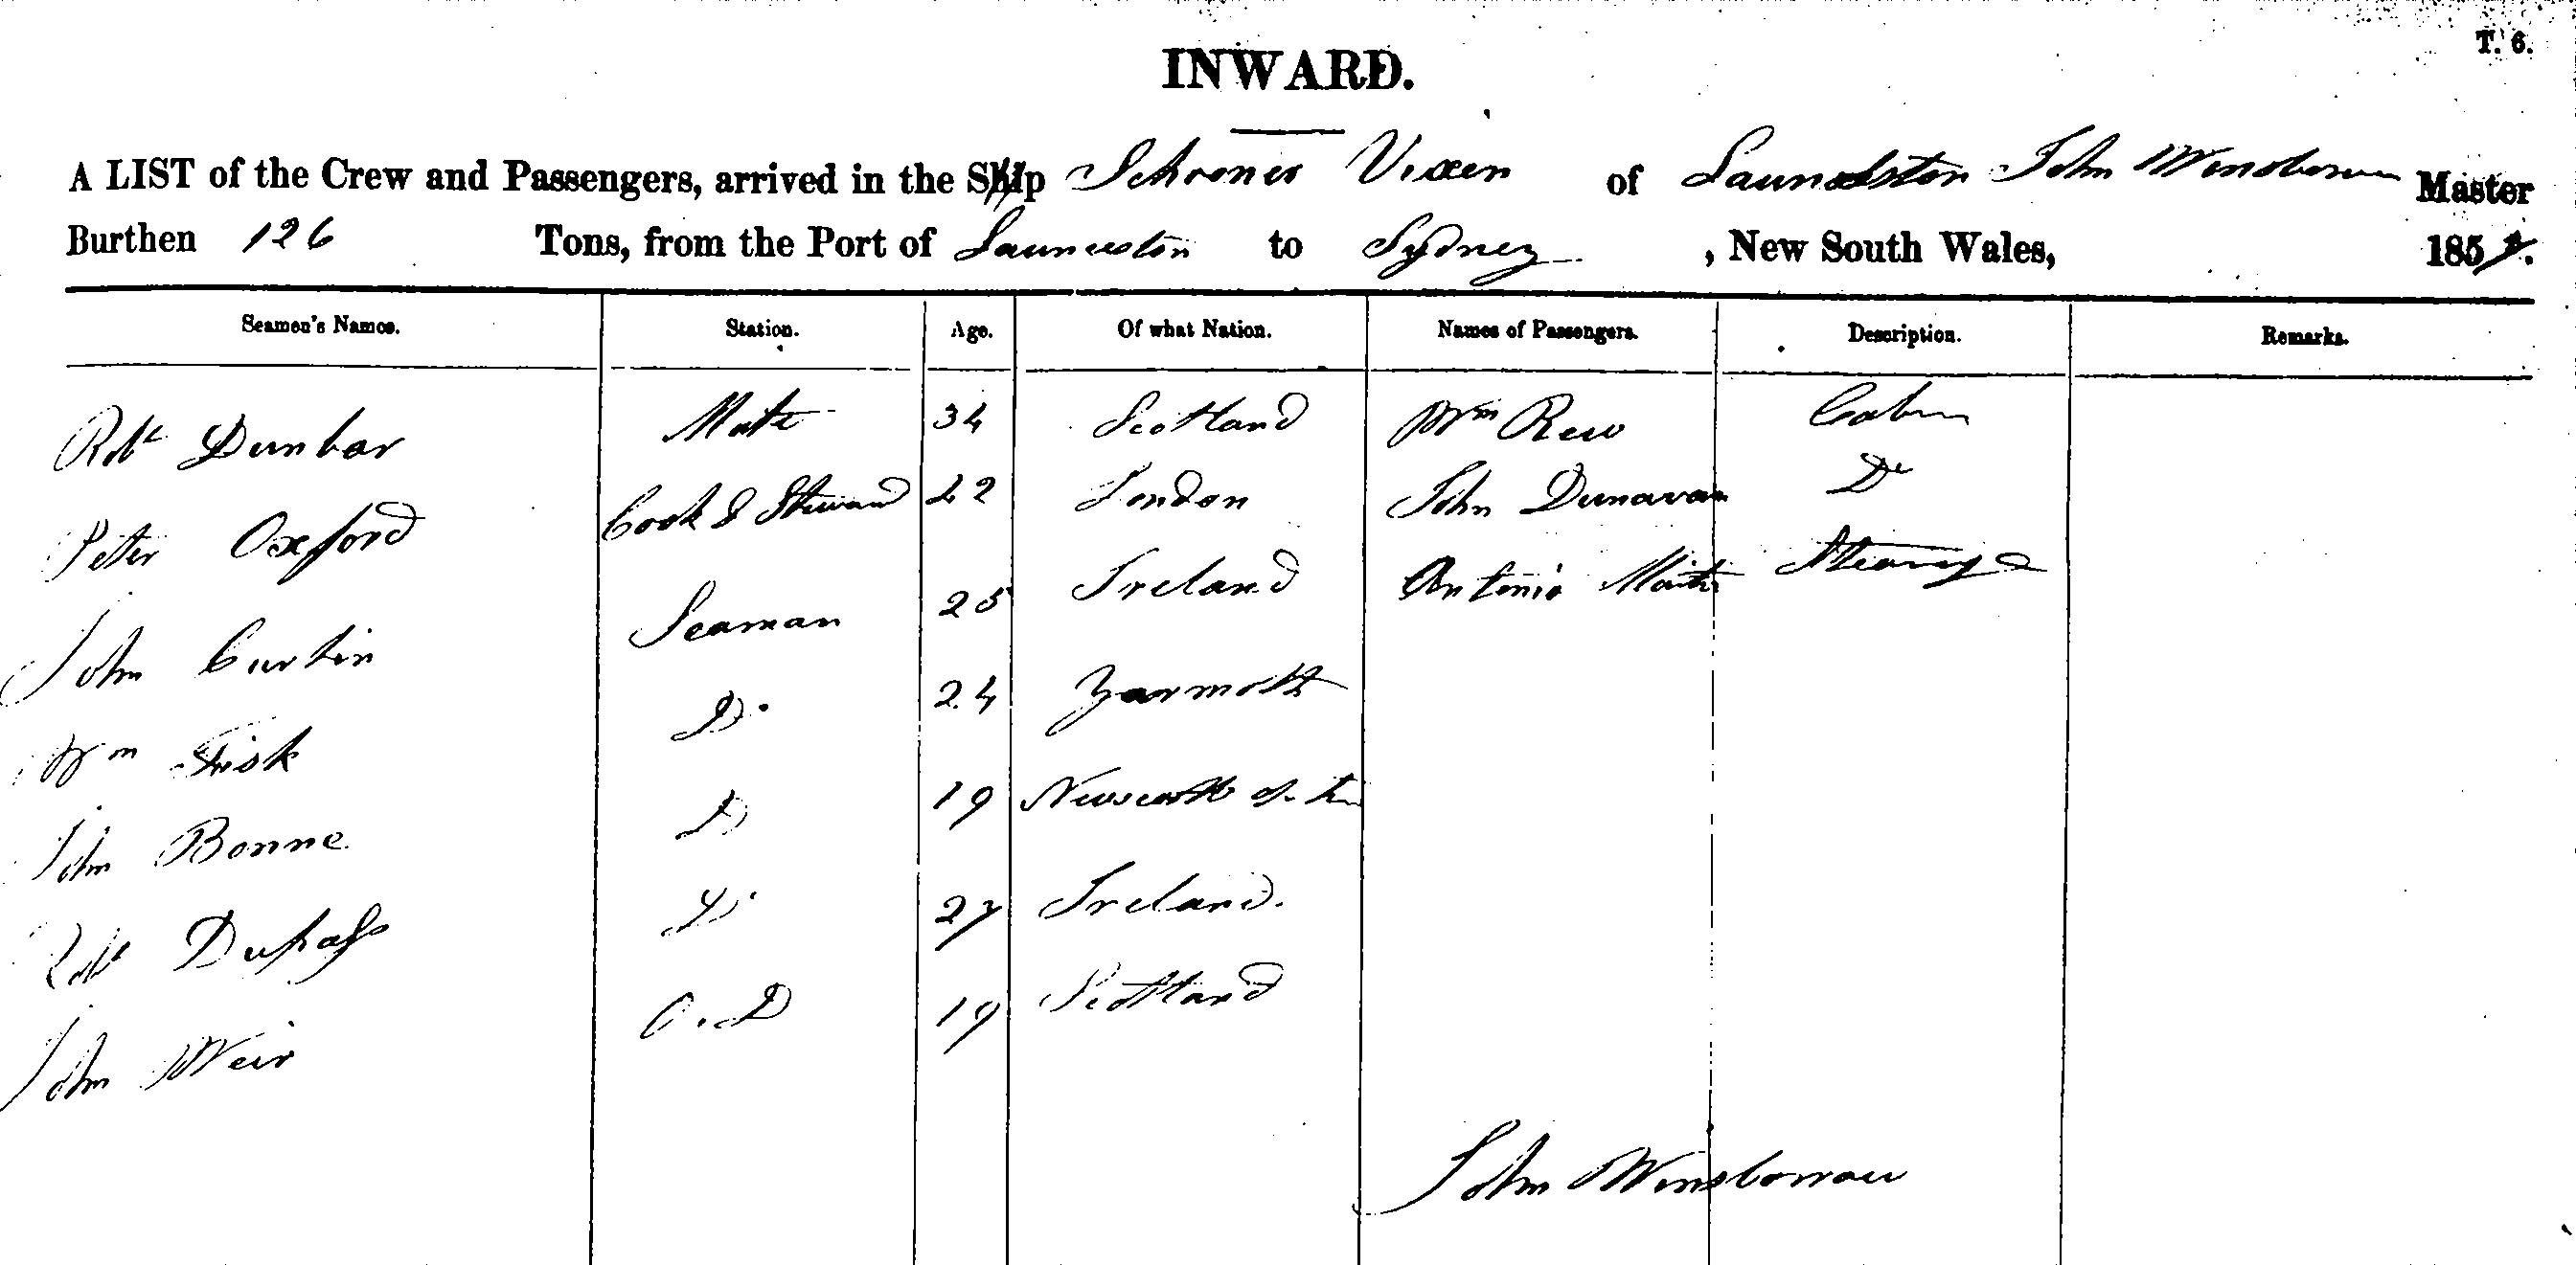 T. 6.
INWARD.
A LIST of the Crew and Passengers, arrived in the Ship Schooner Vixen of Launceston John Winsborrow Master
Burthen 126 Tons, from the Port of Launceston to Sydney, New South Wales, 185
Seamen's Names. Station. Age. Of what Nation. Names of Passengers. Description. Remarks.
Robt Dunbar Mate 34 Scotland Wm Rew Cabin
Peter Oxford Cook & Steward 22 London John Dunavan Do
John Curtin Seaman 25 Ireland Antonio Steerage
Wm Fisk Do 24 Yarmoth
John Bonne Do 19
Robt Dupass Do 27 Ireland.
John Weir O. D 19 Scotland
John Winsborrow